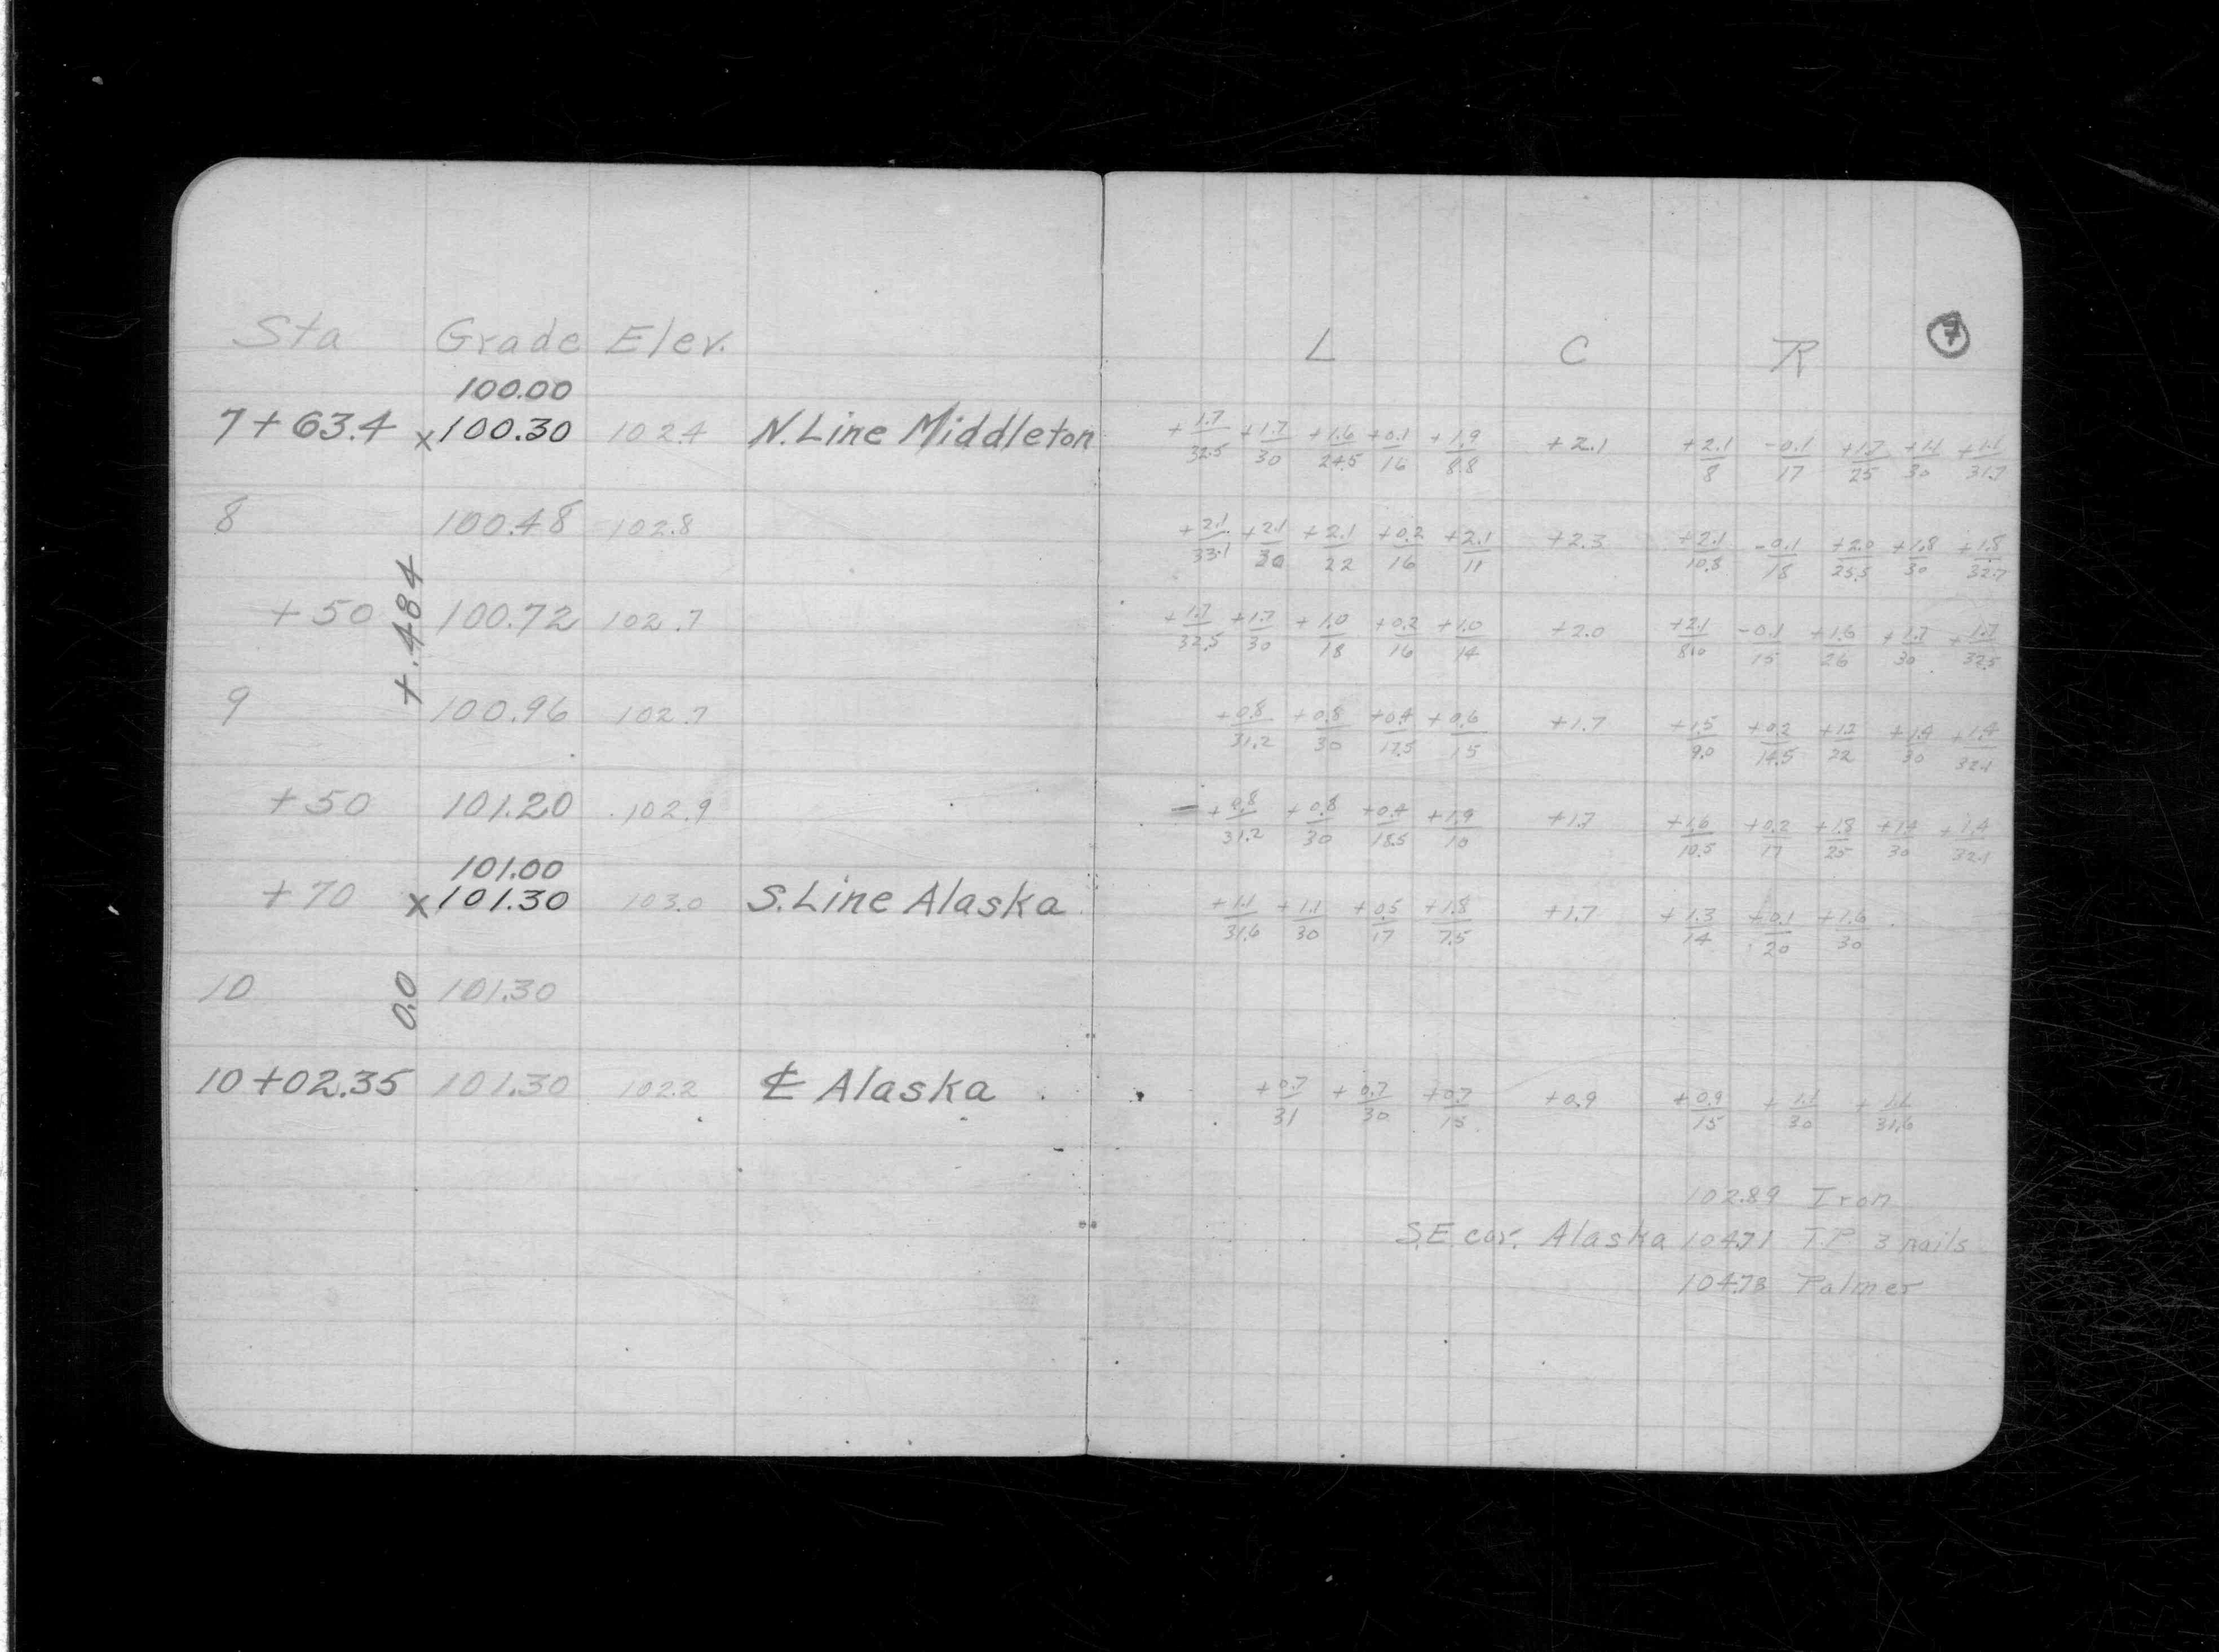 Sta Grade Elev. L C R 7
100.00
7+63.4 x100.30 102.4 N. Line Middleton +1.7/32.5 +1.7/30 +1.6/24.5 +0.1/16 +1.9/8.8 +2.1 +2.1/8 -0.1/17 +1.7/25 +1.1/30 +1.1/31.7
8 100.48 102.8 +2.1/33.1 +2.1/30 +2.1/22 +0.2/16 +2.1/11 +2.3 +2.1/10.8 -0.1/18 +2.0/25.5 +1.8/30 +1.8/32.7
+.484
+50 100.72 102.7 +1.7/32.5 +1.7/30 +1.0/18 +0.2/16 +1.0/14 +2.0 +2.1/8.0 -0.1/15 +1.6/26 +1.7/30 +1.7/32.5
9 100.96 102.7 +0.8/31.2 +0.8/30 +0.4/17.5 +0.6/15 +1.7 +1.5/9.0 +0.2/14.5 +1.2/22 +1.4/30 +1.4/32.1
+50 101.20 102.9 +0.8/31.2 +0.8/30 +0.4/18.5 +1.9/10 +1.7 +1.6/10.5 +0.2/17 +1.8/25 +1.4/30 +1.4/32.1
101.00
+70 x101.30 103.0 S. Line Alaska +1.1/31.6 +1.1/30 +0.5/17 +1.8/7.5 +1.7 +1.3/14 +0.1/20 +1.6/30
10 101.30
0.0
10+02.35 101.30 102.2 ℄ Alaska +0.7/31 +0.7/30 +0.7/15 +0.9 +0.9/15 +1.1/30 +1.1/31.6
102.89 Iron
S.E. cor. Alaska 104.71 T.P. 3 nails
104.78 Palmer